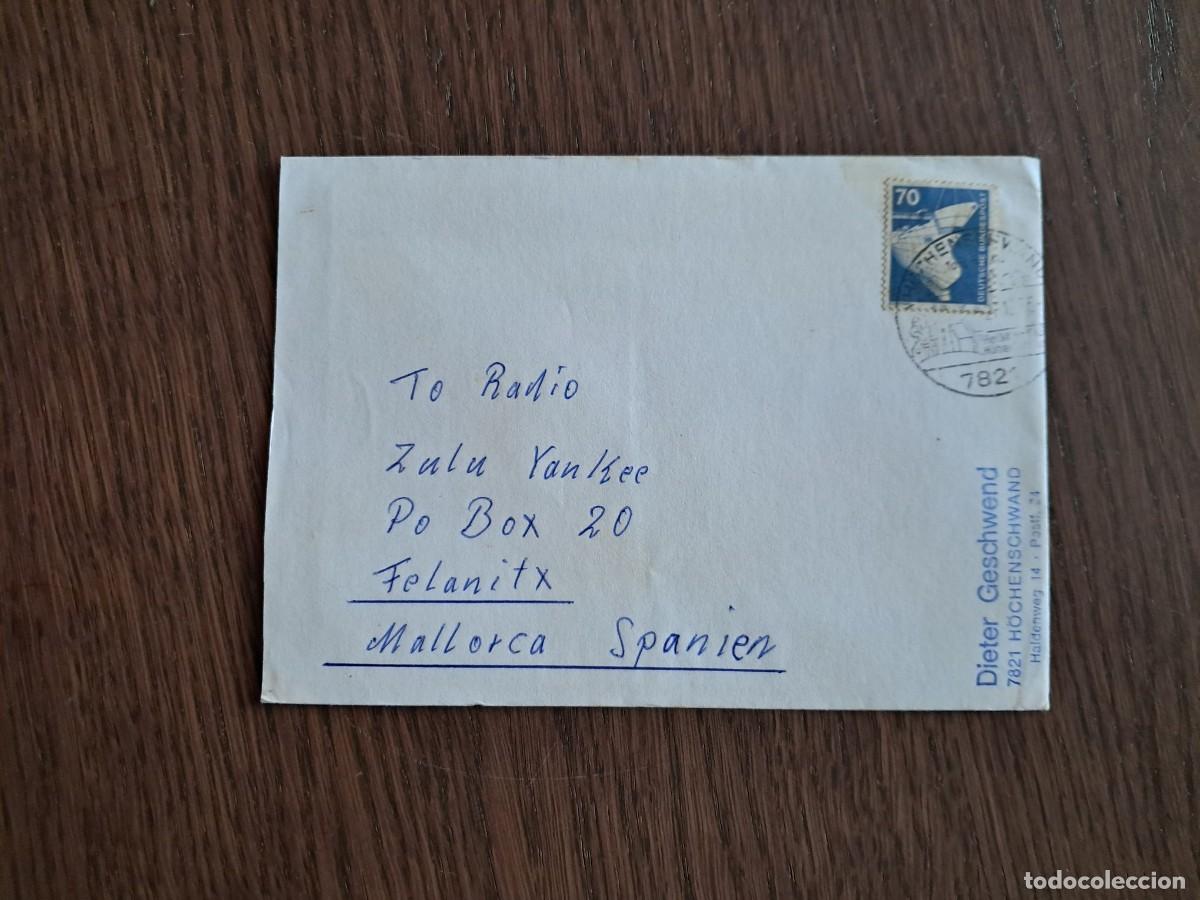 70
DEUTSCHE BUNDESPOST
782
To Radio
Zulu Yankee
Po Box 20
Felanitx
Mallorca Spanien
Dieter Geschwend
7821 HÖCHENSCHWAND
Haldenweg 14 · Postf. 24
todocoleccion